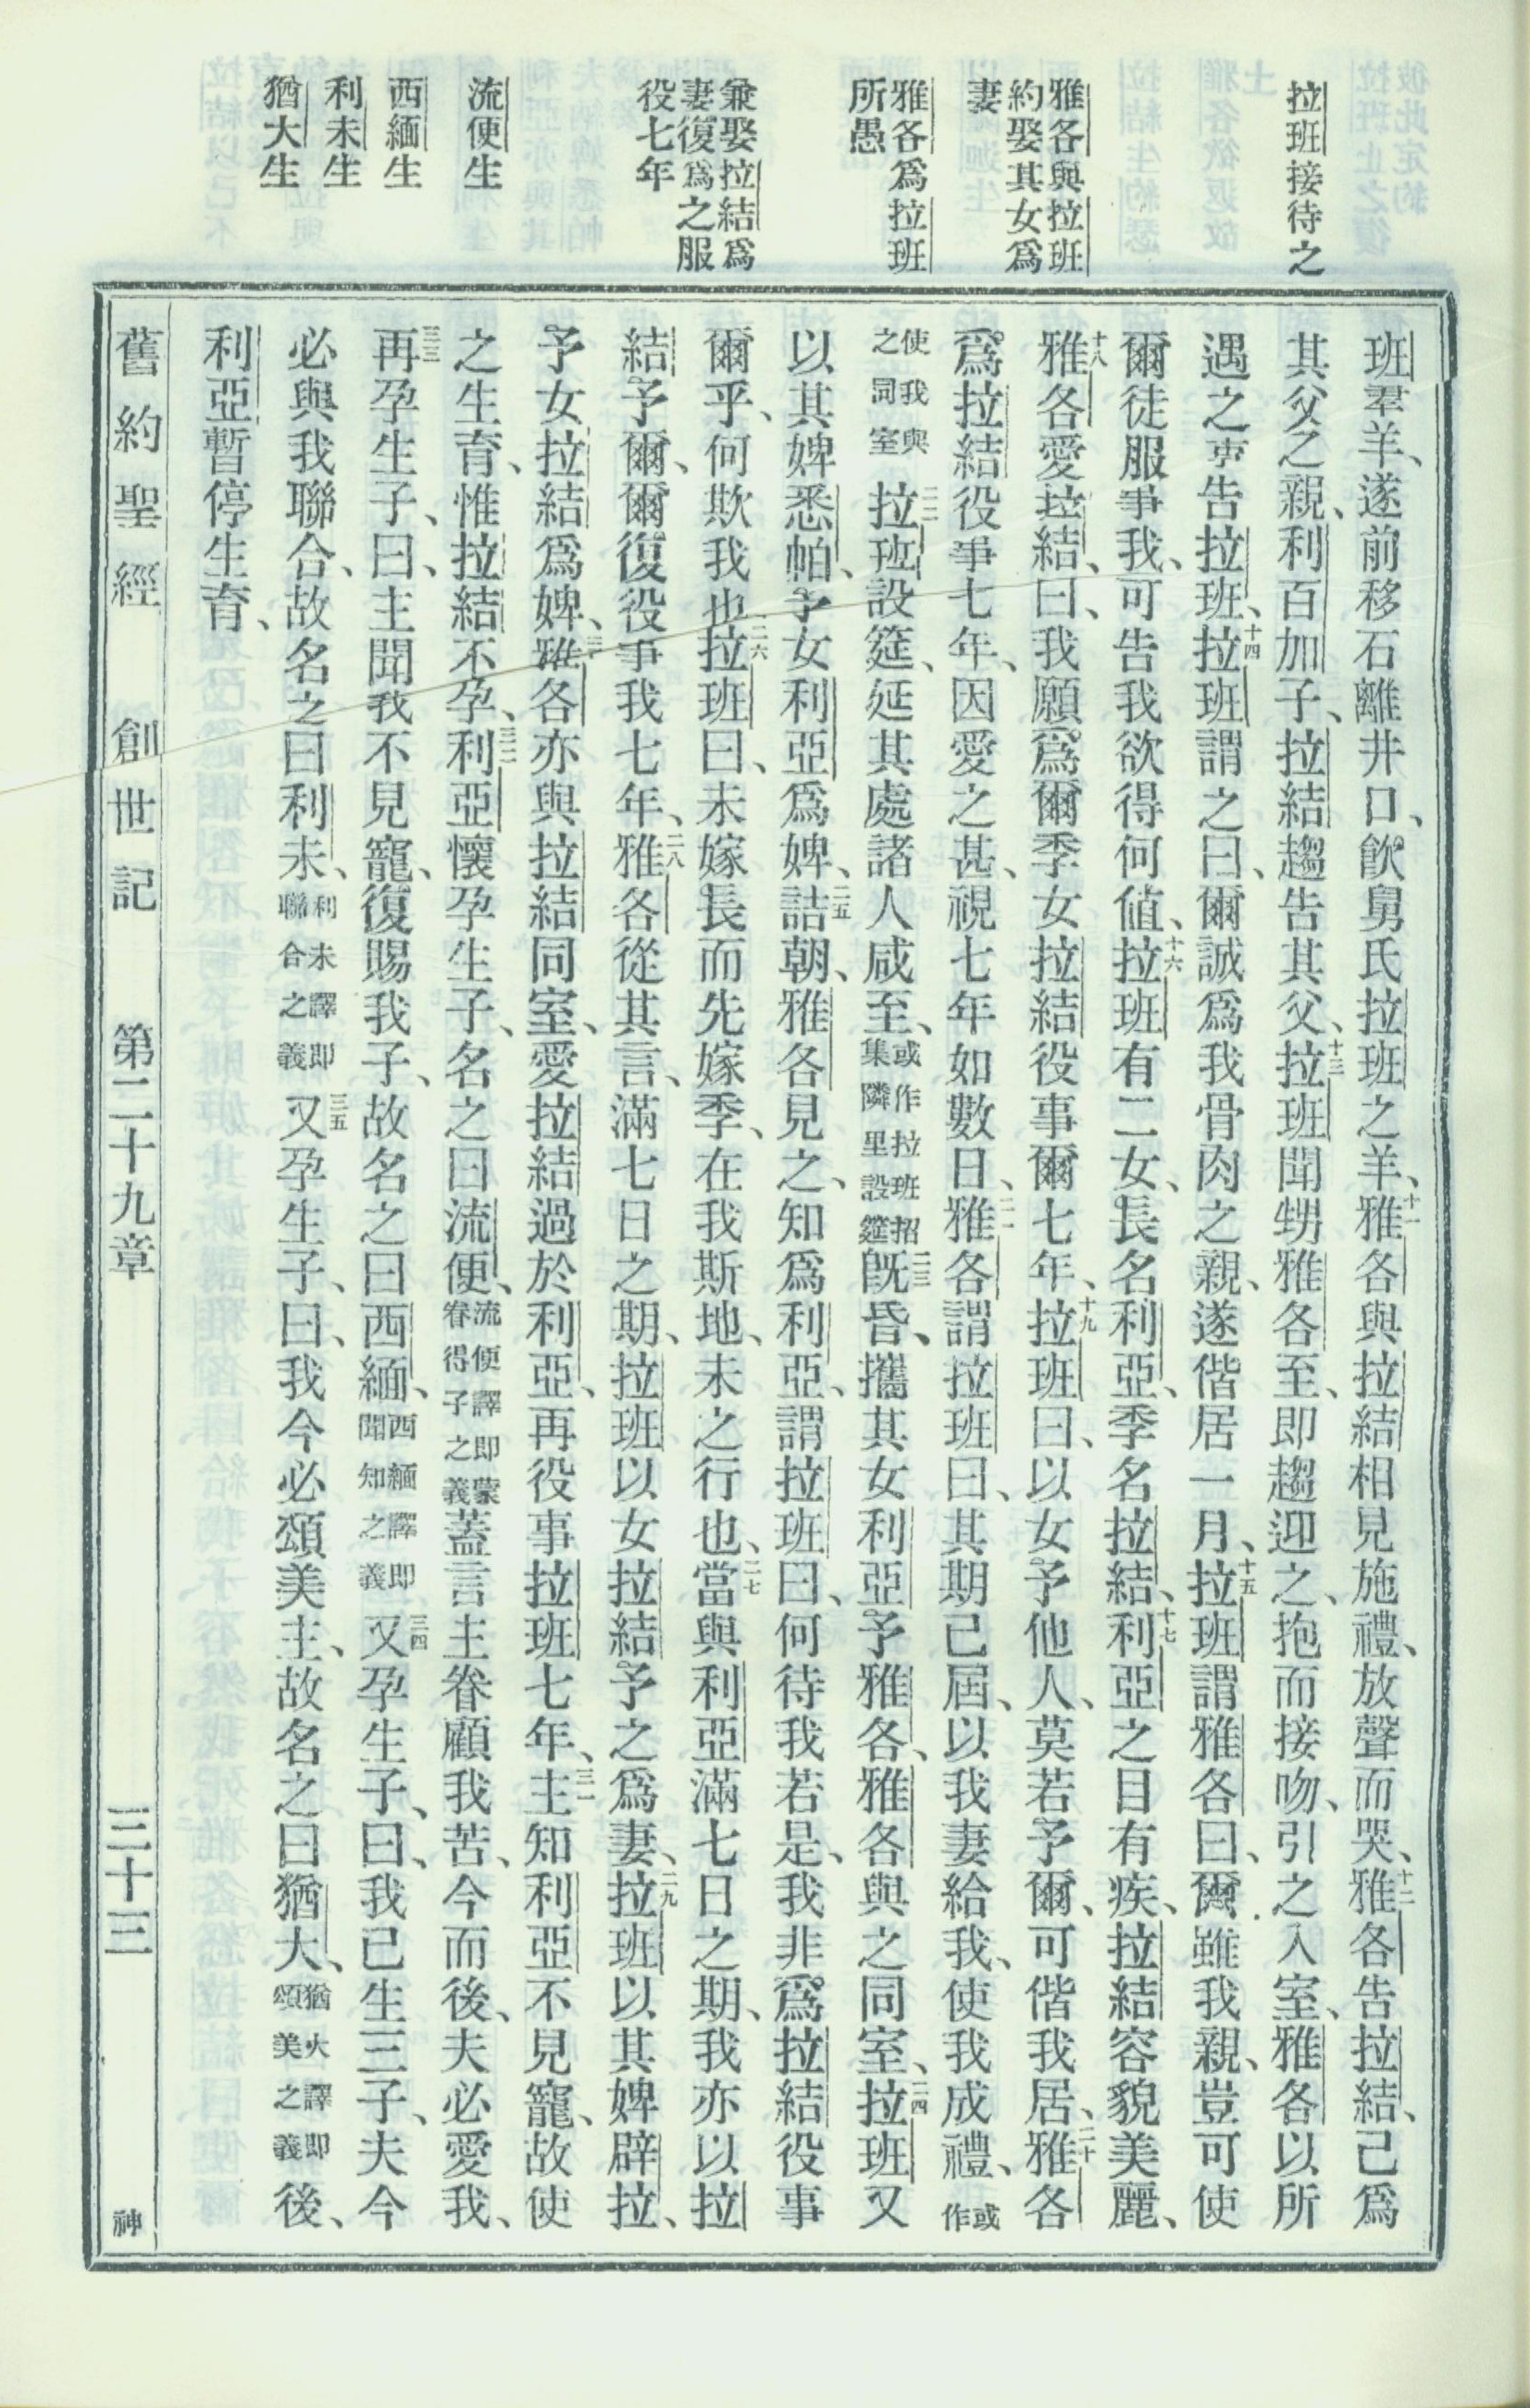 拉班接待之
雅各與拉班
約娶其女爲
妻
雅各爲拉班
所愚
兼娶拉結爲
妻復爲之服
役七年
流便生
西緬生
利未生
猶大生
班羣羊、遂前移石離井口、飲舅氏拉班之羊、十一雅各與拉結相見施禮、放聲而哭、十二雅各告拉結、己爲
其父之親、利百加子、拉結趨告其父、十三拉班聞甥雅各至、即趨迎之、抱而接吻、引之入室、雅各以所
遇之事告拉班、十四拉班謂之曰、爾誠爲我骨肉之親、遂偕居一月、十五拉班謂雅各曰、爾雖我親、豈可使
爾徒服事我、可告我欲得何値、十六拉班有二女、長名利亞、季名拉結、十七利亞之目有疾、拉結容貌美麗、
十八雅各愛拉結、曰、我願爲爾季女拉結役事爾七年、十九拉班曰、以女予他人、莫若予爾、可偕我居、二十雅各
爲拉結役事七年、因愛之甚、視七年如數日、二一雅各謂拉班曰、其期已屆、以我妻給我、使我成禮、或作
使我與之同室二二拉班設筵、延其處諸人咸至、或作拉班招集隣里設筵二三旣昏、攜其女利亞予雅各、雅各與之同室、二四拉班又
以其婢悉帕、予女利亞爲婢、二五詰朝、雅各見之、知爲利亞、謂拉班曰、何待我若是、我非爲拉結役事
爾乎、何欺我也、二六拉班曰、未嫁長而先嫁季、在我斯地、未之行也、二七當與利亞滿七日之期、我亦以拉
結予爾、爾復役事我七年、二八雅各從其言、滿七日之期、拉班以女拉結予之爲妻、二九拉班以其婢辟拉、
予女拉結爲婢、三十雅各亦與拉結同室、愛拉結過於利亞、再役事拉班七年、三一主知利亞不見寵、故使
之生育、惟拉結不孕、三二利亞懷孕生子、名之曰流便、流便譯即蒙眷得子之義蓋言主眷顧我苦、今而後、夫必愛我、
三三再孕生子、曰、主聞我不見寵、復賜我子、故名之曰西緬、西緬譯即聞知之義三四又孕生子、曰、我已生三子、夫今
必與我聯合、故名之曰利未、利未譯即聯合之義三五又孕生子、曰、我今必頌美主、故名之曰猶大、猶大譯即頌美之義後、
利亞暫停生育、
舊約聖經 創世記 第二十九章 三十三 神